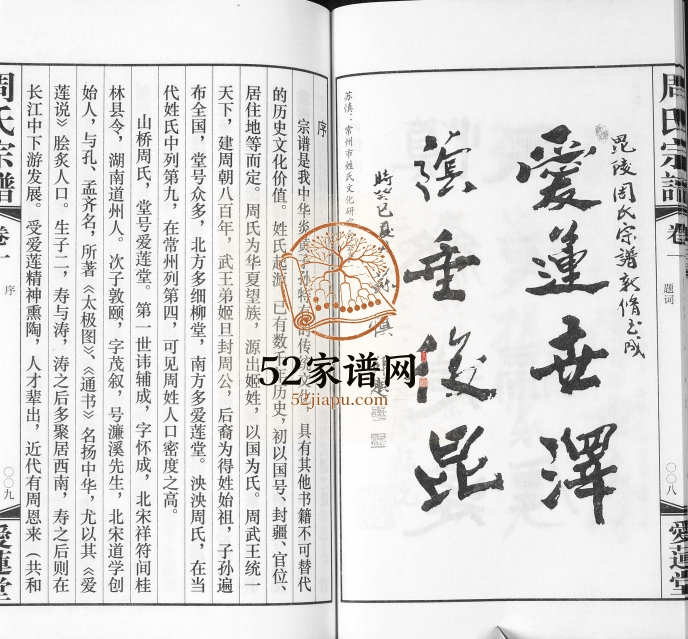 周氏宗譜
卷一
题词
〇〇八
愛蓮堂
毘陵周氏宗谱新修玉成
愛蓮世澤
垂後昆
時癸巳夏
苏慎：常州市姓氏文化研究
序
宗谱是我中华炎黄子孙特有的传统文化，具有其他书籍不可替代
的历史文化价值。姓氏起源，已有数千年历史，初以国号、封疆、官位、
居住地等而定。周氏为华夏望族，源出姬姓，以国为氏。周武王统一
天下，建周朝八百年，武王弟姬旦封周公，后裔为得姓始祖，子孙遍
布全国，堂号众多，北方多细柳堂，南方多爱莲堂。泱泱周氏，在当
代姓氏中列第九，在常州列第四，可见周姓人口密度之高。
山桥周氏，堂号爱莲堂。第一世讳辅成，字怀成，北宋祥符间桂
林县令，湖南道州人。次子敦颐，字茂叙，号濂溪先生，北宋道学创
始人，与孔、孟齐名，所著《太极图》、《通书》名扬中华，尤以其《爱
莲说》脍炙人口。生子二，寿与涛，涛之后多聚居西南，寿之后则在
长江中下游发展。受爱莲精神熏陶，人才辈出，近代有周恩来（共和
周氏宗譜
卷一
序
〇〇九
愛蓮堂
52家谱网
52jiapu.com